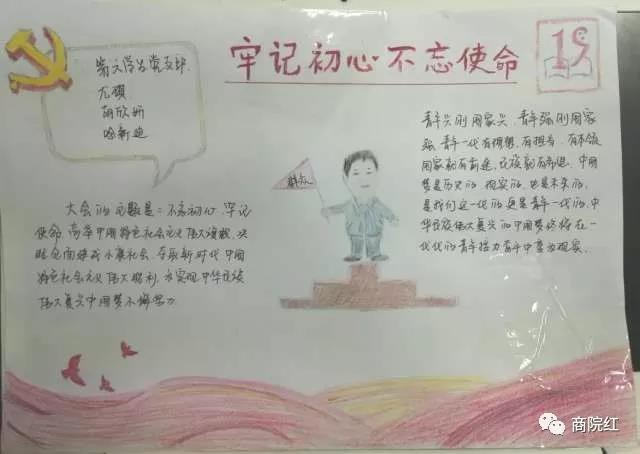 牢记初心不忘使命
19
党支部
尤琪
胡欣妍
喻新迪
群众
大会的主题是：不忘初心，牢记
使命，高举中国特色社会主义伟大旗帜，决
胜全面建成小康社会，夺取新时代中国
特色社会主义伟大胜利，为实现中华民族
伟大复兴中国梦不懈努力
青年兴则国家兴，青年强则国家
强。青年一代有理想、有担当、有本领
国家就有前途，民族就有希望，中国
梦是历史的、现实的，也是未来的，
是我们这一代的，更是青年一代的，中
华民族伟大复兴的中国梦终将在一
代代的青年接力奋斗中变为现实。
商院红